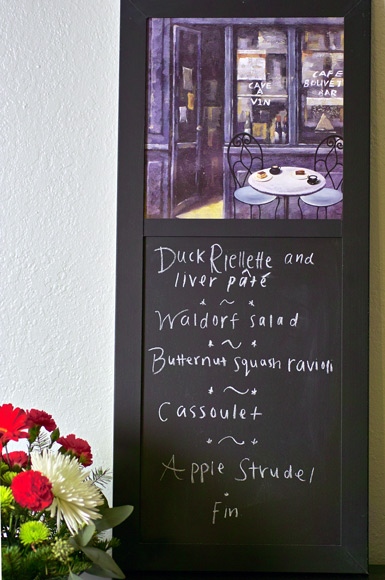 CAVE
A
VIN
CAFE
BOUVET
BAR
Duck Riellette and
liver pâté
* ~ *
Waldorf salad
* ~ *
Butternut squash ravioli
* ~ *
Cassoulet
* ~ *
Apple Strudel
*
Fin